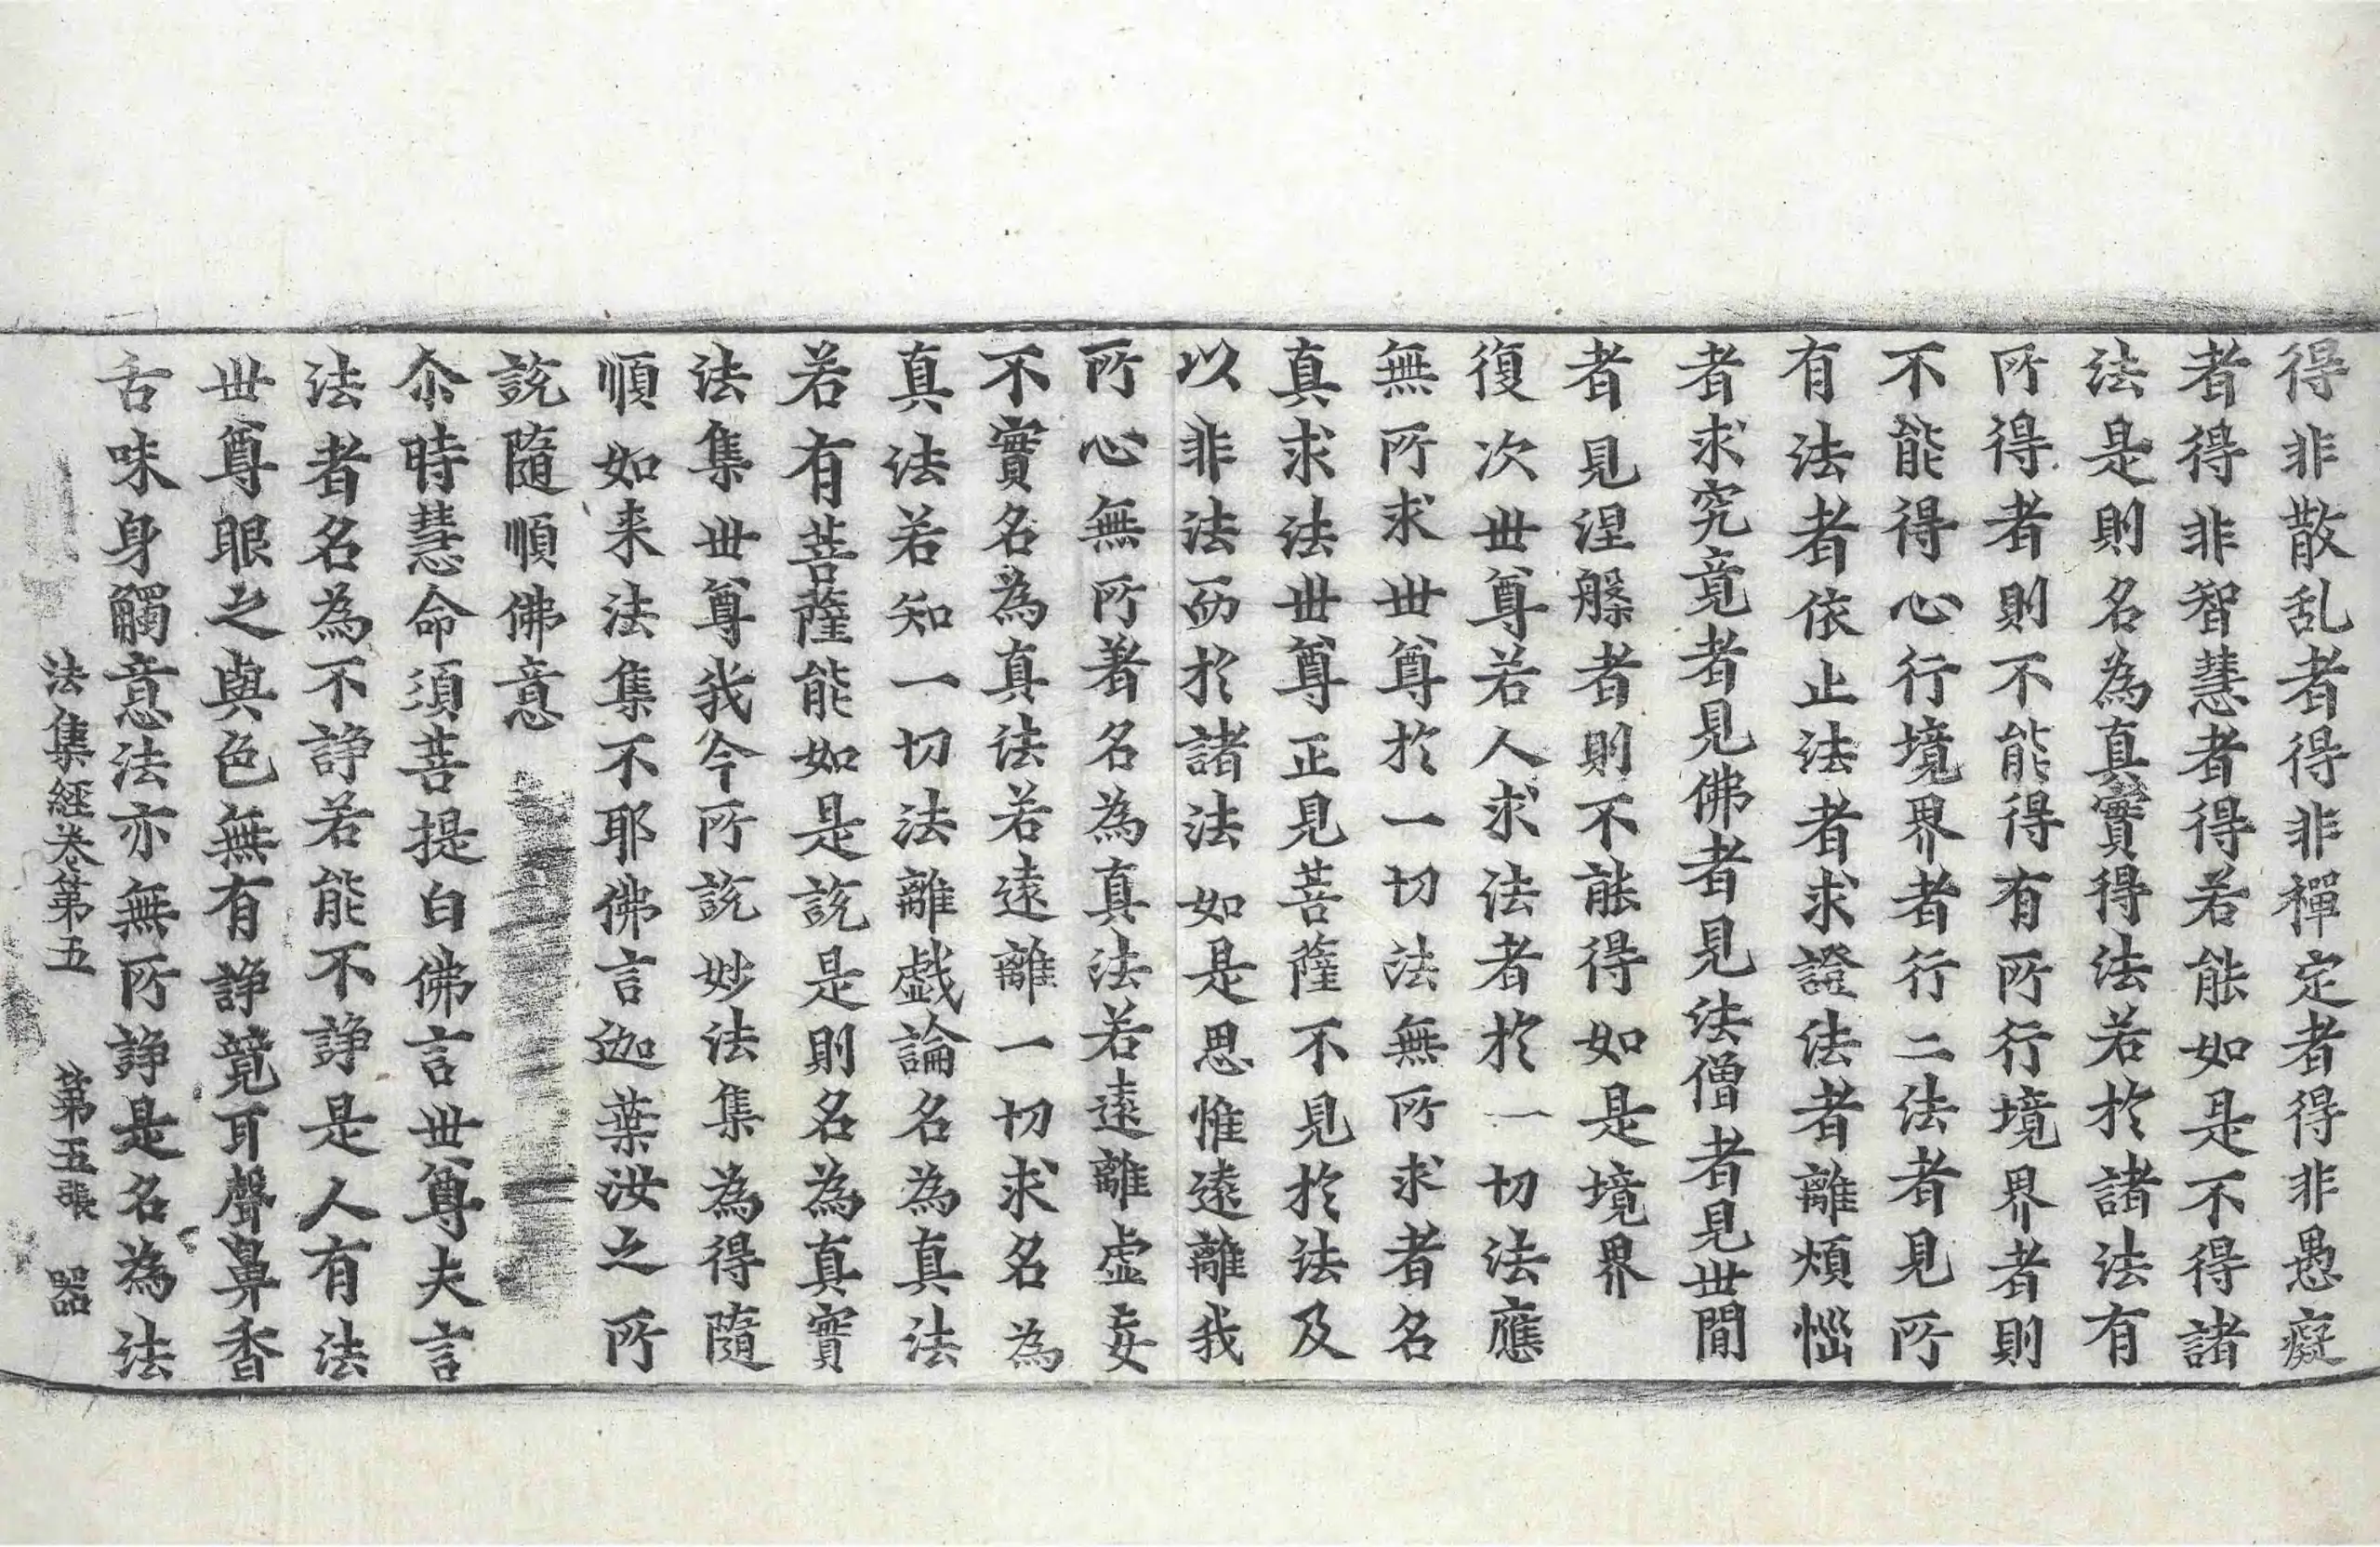 得非散乱者得非禪定者得非愚癡
者得非智慧者得若能如是不得諸
法是則名為真實得法若於諸法有
所得者則不能得有所行境界者則
不能得心行境界者行二法者見所
有法者依止法者求證法者離煩惱
者求究竟者見佛者見法僧者見世間
者見涅槃者則不能得如是境界
復次世尊若人求法者於一切法應
無所求世尊於一切法無所求者名
真求法世尊正見菩薩不見於法及
以非法而於諸法如是思惟遠離我
所心無所著名為真法若遠離虛妄
不實名為真法若遠離一切求名為
真法若知一切法離戲論名為真法
若有菩薩能如是說是則名為真實
法集世尊我今所說妙法集為得隨
順如来法集不耶佛言迦葉汝之所
說隨順佛意
尒時慧命須菩提白佛言世尊夫言
法者名為不諍若能不諍是人有法
世尊眼之與色無有諍競耳聲鼻香
舌味身觸意法亦無所諍是名為法
法集經卷第五 第五張 器